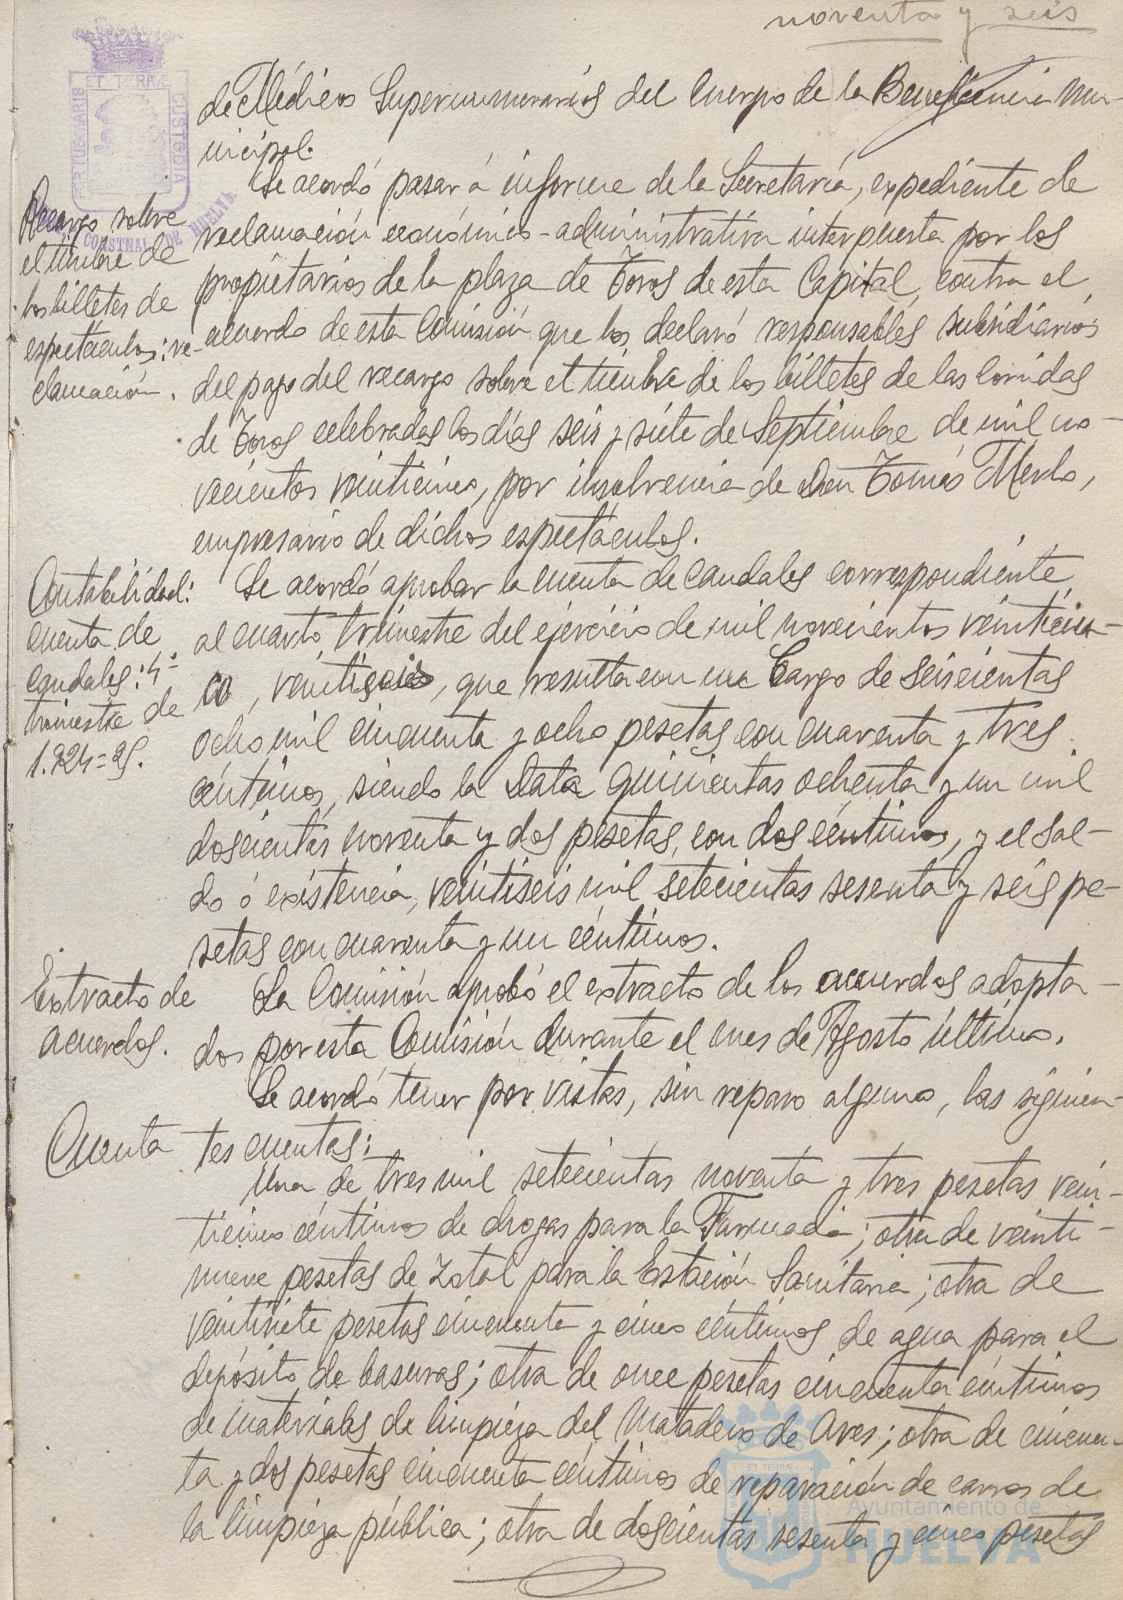 noventa y seis
de Médicos Supernumerarios del Cuerpo de la Beneficencia Mu-
nicipal.
Se acordó pasar á informe de la Secretaría, expediente de
reclamación económico-administrativa interpuesta por los
propietarios de la plaza de Toros de esta Capital, contra el
acuerdo de esta Comisión que los declaró responsables subsidiarios
del pago del recargo sobre el timbre de los billetes de las corridas
de Toros celebradas los días seis y siete de Septiembre de mil no-
vecientos veinticinco, por insolvencia de Don Tomás Merlo,
empresario de dichos espectáculos.
Recargo sobre
el timbre de
los billetes de
espectáculos: re-
clamación.
Se acordó aprobar la cuenta de caudales correspondiente
al cuarto trimestre del ejercicio de mil novecientos veinticin-
co, veintiseis, que resulta con un Cargo de seiscientas
ocho mil cincuenta y ocho pesetas con cuarenta y tres
céntimos, siendo la Data quinientas ochenta y un mil
doscientas noventa y dos pesetas, con dos céntimos, y el sal-
do ó existencia, veintiseis mil setecientas sesenta y seis pe-
setas con cuarenta y un céntimos.
Contabilidad:
cuenta de
caudales: 4º
trimestre de
1.924=25.
La Comisión aprobó el extracto de los acuerdos adopta-
dos por esta Comisión durante el mes de Agosto último.
Extracto de
acuerdos.
Se acordó tener por vistas, sin reparo alguno, las siguien-
tes cuentas:
Cuenta
Una de tres mil setecientas noventa y tres pesetas vein-
ticinco céntimos de drogas para la Farmacia; otra de veinti-
nueve pesetas de Zotal para la Estación Sanitaria; otra de
veintisiete pesetas cincuenta y cinco céntimos de agua para el
depósito de basuras; otra de once pesetas cincuenta céntimos
de materiales de limpieza del Matadero de Aves; otra de cincuen-
ta y dos pesetas cincuenta céntimos de reparación de carros de
la limpieza pública; otra de doscientas sesenta y cinco pesetas
ET TERRÆ
CUSTODIA
CONSTNAL DE HUELVA
ET TERRÆ
Ayuntamiento de
HUELVA